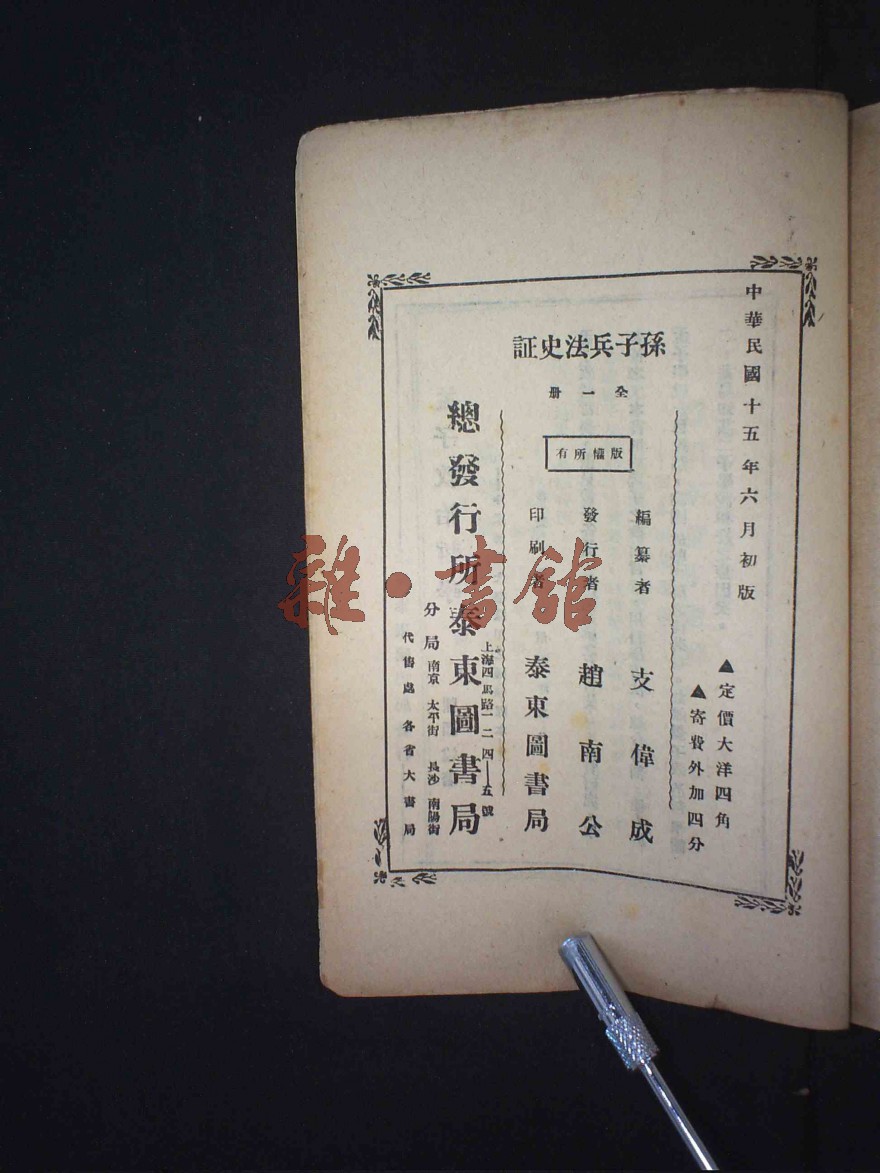 中華民國十五年六月初版
▲定價大洋四角
▲寄費外加四分
孫子兵法史証
全一册
版權所有
編纂者 支偉成
發行者 趙南公
印刷者 泰東圖書局
上海四馬路一二四—五號
總發行所泰東圖書局
分局 南京 太平街 長沙 南陽街
代售處 各省大書局
雜·書館